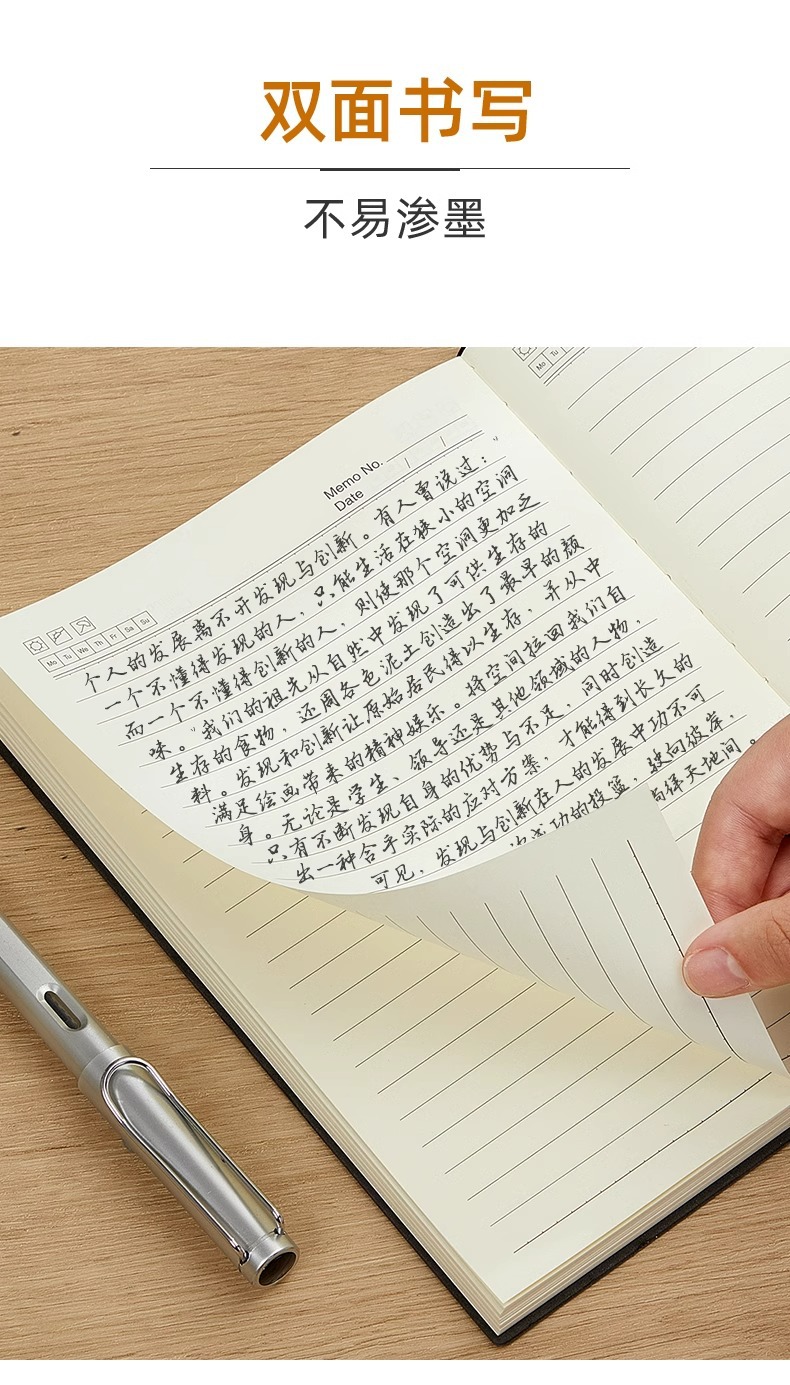 双面书写
不易渗墨
Memo No.
Date
Mo Tu
Mo Tu We Th Fr Sa Su
个人的发展离不开发现与创新。有人曾说过："
一个不懂得发现的人，只能生活在狭小的空洞
而一个不懂得创新的人，则使那个空洞更加乏
味。"我们的祖先从自然中发现了可供生存的
生存的食物，还周各色泥土创造出了最早的颜
料。发现和创新让原始居民得以生存，并从中
满足绘画带来的精神娱乐。将空间拉回我们自
身。无论是学生、领导还是其他领域的人物，
只有不断发现自身的优势与不足，同时创造
出一种合乎实际的应对方案，才能得到长久的
可见，发现与创新在人的发展中功不可
成功的投篮，驶向彼岸，
天地间。